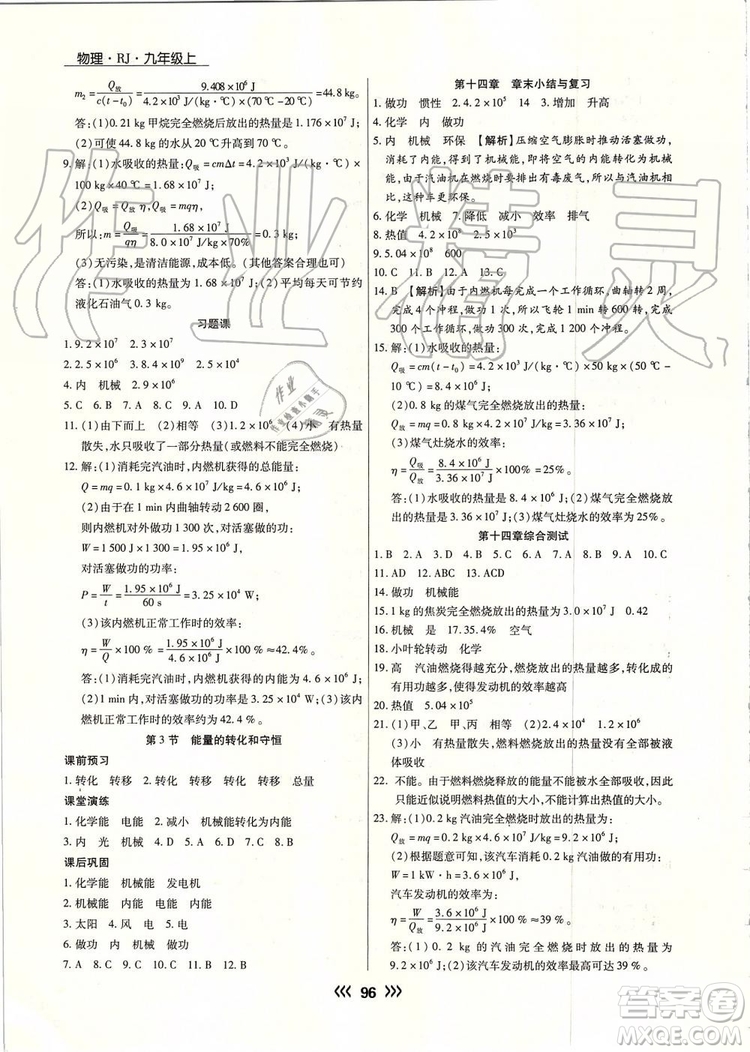 物理·RJ·九年级上
m₂=Q放/c(t-t₀)=9.408×10⁶ J/4.2×10³ J/(kg·℃)×(70℃-20℃)=44.8 kg。
答:(1)0.21 kg 甲烷完全燃烧后放出的热量是 1.176×10⁷ J;
(2)可使 44.8 kg 的水从 20℃加热到 70℃。
9.解:(1)水吸收的热量:Q吸=cmΔt=4.2×10³ J/(kg·℃)×
100 kg×40℃=1.68×10⁷ J;
(2)Q吸=Q放η,Q吸=mqη,
所以:m=Q吸/qη=1.68×10⁷ J/8.0×10⁷ J/kg×70%=0.3 kg;
(3)无污染,是清洁能源,成本低。(其他答案合理亦可)
答:(1)水吸收的热量为 1.68×10⁷ J;(2)平均每天可节约
液化石油气 0.3 kg。
习题课
1.9.2×10⁷ 2.3×10⁷
2.2.5×10⁶ 3.8.4×10⁶ 2.9×10⁷
4.内 机械 2 1.2×10⁶
5.C 6.C 7.B 8.C 9.A 10.D
11.(1)由下而上 (2)相等 (3)1.26×10⁶ (4)小 有热量
散失,水只吸收了一部分热量(或燃料不能完全燃烧)
12.解:(1)消耗完汽油时,内燃机获得的总能量:
Q=mq=0.1 kg×4.6×10⁷ J/kg=4.6×10⁶ J;
(2)由于在 1 min 内曲轴转动 2 600 圈,
则内燃机对外做功 1 300 次,对活塞做的功:
W=1 500 J×1 300=1.95×10⁶ J,
对活塞做功的功率:
P=W/t=1.95×10⁶ J/60 s=3.25×10⁴ W;
(3)该内燃机正常工作时的效率:
η=W/Q×100%=1.95×10⁶ J/4.6×10⁶ J×100%≈42.4%。
答:(1)消耗完汽油时,内燃机获得的能量为 4.6×10⁶ J;
(2)1 min 内,对活塞做功的功率为 3.25×10⁴ W;(3)该内
燃机正常工作时的效率为 42.4%。
第 3 节 能量的转化和守恒
课前预习
1.转化 转移 2.转化 转移 转化 转移 总量
课堂演练
1.化学能 电能 2.减小 机械能转化为内能
3.内 光 机械 4.B 5.D 6.C 7.D 8.A
课后巩固
1.化学能 机械能 发电机
2.机械能 内能 电能 内能
3.太阳 4.风 电 5.電
6.做功 内 机械 做功
7.A 8.A 9.D 10.B 11.D 12.C
第十四章 章末小结与复习
1.做功 惯性 2.4.2×10⁵ 14 3.增加 升高
4.化学 内 做功
5.内 机械 环保 【解析】压缩空气膨胀时推动活塞做功,
消耗了内能,得到了机械能,即将空气的内能转化为机械
能,由于汽油机在燃烧时会排出有毒废气,所以与汽油机相
比,这种车更环保。
6.化学 机械 7.降低 减小 效率 排气
8.热值 4.2×10⁸ 6×10⁶
9.5.04×10⁸ 600
10.C 11.A 12.A 13.C
14.B 【解析】由于内燃机每完成一个工作循环,曲轴转 2 周,
完成 4 个冲程,做功 1 次,所以飞轮 1 min 转 600 圈,完成
300 个工作循环,做功 300 次,完成 1 200 个冲程。
15.解:(1)水吸收的热量:
Q吸=cm(t-t₀)=4.2×10³ J/(kg·℃)×50 kg×(50℃-
10℃)=8.4×10⁶ J;
(2)0.8 kg 的煤气完全燃烧放出的热量:
Q放=mq=0.8 kg×4.2×10⁷ J/kg=3.36×10⁷ J;
(3)煤气灶烧水的效率:
η=Q吸/Q放×100%=8.4×10⁶ J/3.36×10⁷ J×100%=25%。
答:(1)水吸收的热量是 8.4×10⁶ J;(2)煤气完全燃烧放
出的热量是 3.36×10⁷ J;(3)煤气灶烧水的效率是 25%。
第十四章综合测试
1.B 2.A 3.D 4.C 5.A 6.B 7.A 8.C 9.A 10.C
11.AD 12.AB 13.ACD
14.做功 机械能
15.1 kg 的焦炭完全燃烧放出的热量为 3.0×10⁷ J 0.42
16.机械 是 17.35.4% 空气
18.小叶轮转动 化学
19.高 汽油燃烧得越充分,燃烧放出的热量越多,转化成的
有用功越多,使得发动机的效率越高
20.热值 5.04×10⁵
21.(1)甲、乙 甲、丙 相等 (2)2.1×10⁶
(3)小 有热量散失,燃料燃烧放出的热量没有全部被液
体吸收
22.不能。由于燃料燃烧释放的能量不能被水全部吸收,因
此只能近似说明燃料热值的大小,不能得到热值。
23.解:(1)汽油完全燃烧放出的热量为:
Q放=mq=0.2 kg×4.6×10⁷ J/kg=9.2×10⁶ J;
(2)根据题意可知,该汽车消耗 0.2 kg 汽油做的功为:
W=1 kW·h=3.6×10⁶ J,
汽车发动机的效率为:
η=W/Q放=3.6×10⁶ J/9.2×10⁶ J×100%≈39%。
答:(1)0.2 kg 的汽油完全燃烧放出的热量为
9.2×10⁶ J;(2)该汽车发动机的效率最高可达 39%。
96
作业精灵
答案圈
MXQE.COM